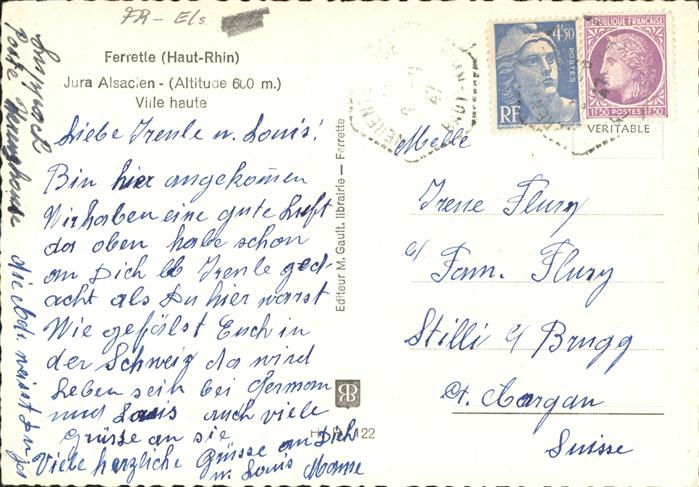 FR - Els
Ferrette (Haut-Rhin)
Jura Alsacien - (Altitude 600 m.)
Ville haute
Liebe Irenle u. Louis!
Bin hier angekommen
Wir haben eine gute Luft
da oben habe schon
an Dich lb Irenle ged-
acht als Du hier warst
Wie gefälst Euch in
der Schweiz da wird
Leben sein bei Germain
und Louis auch viele
Grüsse an sie
Viele herzliche Grüsse an Dich
u. Louis Mame
die Adr. weisst Du ja
Editeur M. Gault. librairie - Ferrette
122
4f50
POSTES
RF
REPUBLIQUE FRANÇAISE
1f50 POSTES 1f50
VERITABLE
Melle
Irene Flury
c/ Fam. Flury
Stilli c/ Brugg
Ct. Aargau
Suisse